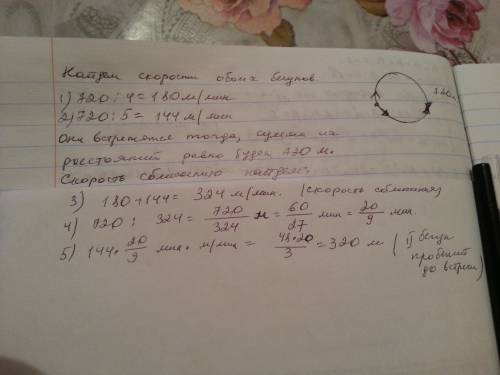 Найдем скорости обоих бегунов.
1) 720 : 4 = 180 м/мин
2) 720 : 5 = 144 м/мин
720м
Они встретятся тогда, сумма их
расстояний равно будет 720 м.
Скорость сближения найдем:
3) 180 + 144 = 324 м/мин. (скорость сближения)
4) 720 : 324 = 720/324 м = 60/27 мин = 20/9 мин.
5) 144 · 20/9 мин · м/мин = 48·20/3 = 320 м (II бегун
пробежит
до встречи)